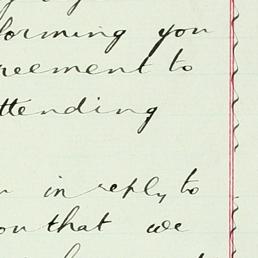 forming you
reement to
ttending
in reply to
on that we